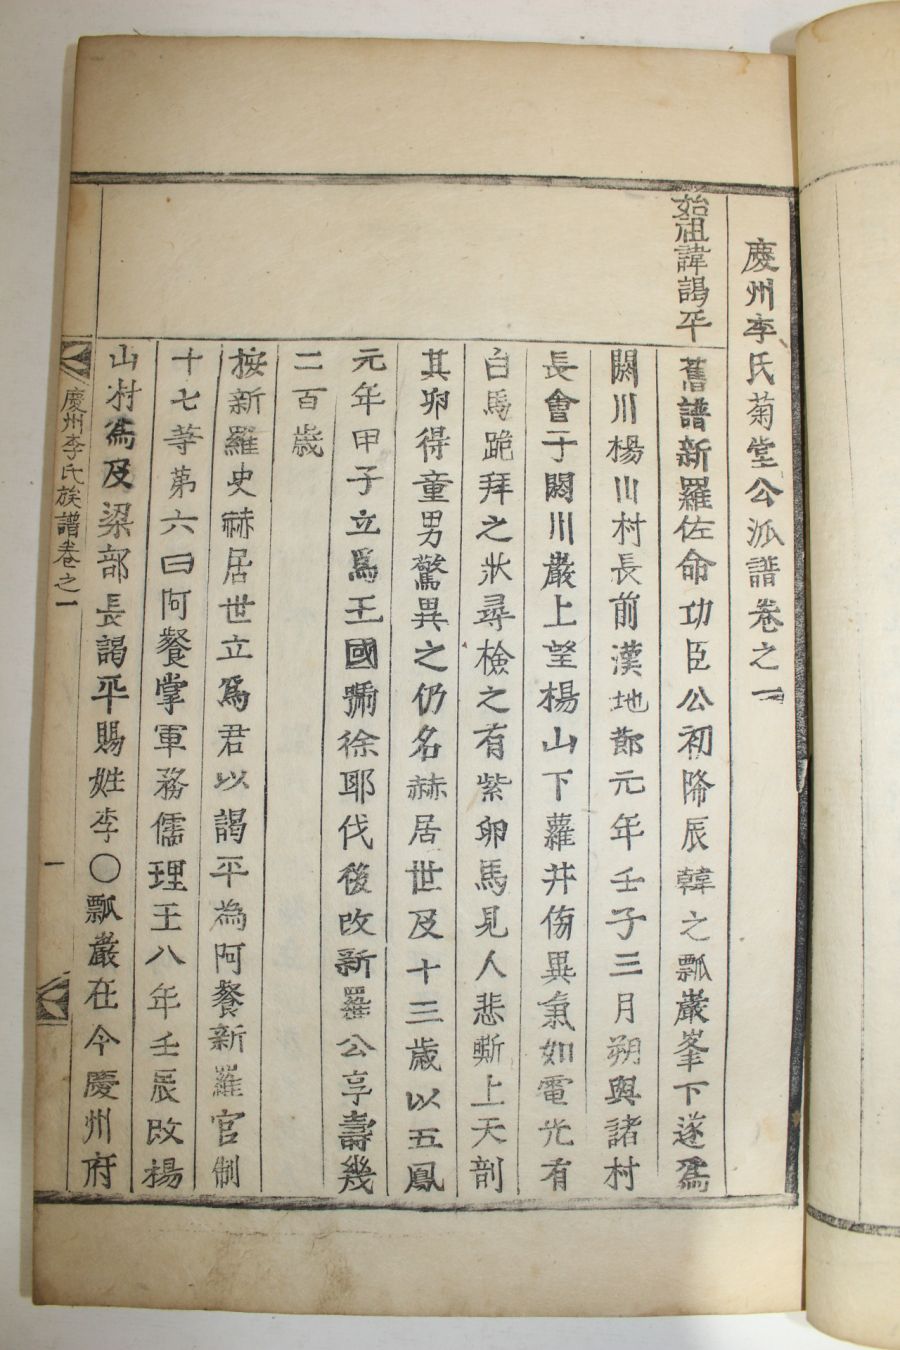 慶州李氏菊堂公派譜卷之一
始祖諱謁平
舊譜新羅佐命功臣公初降辰韓之瓢巖峯下遂爲
閼川楊川村長前漢地節元年壬子三月朔與諸村
長會于閼川巖上望楊山下蘿井傍異氣如電光有
白馬跪拜之狀尋檢之有紫卵馬見人悲嘶上天剖
其卵得童男驚異之仍名赫居世及十三歲以五鳳
元年甲子立爲王國號徐耶伐後改新羅公享壽幾
二百歲
按新羅史赫居世立爲君以謁平為阿餐新羅官制
十七等第六曰阿餐掌軍務儒理王八年壬辰改楊
山村爲及梁部長謁平賜姓李〇瓢巖在今慶州府
慶州李氏族譜卷之一
一